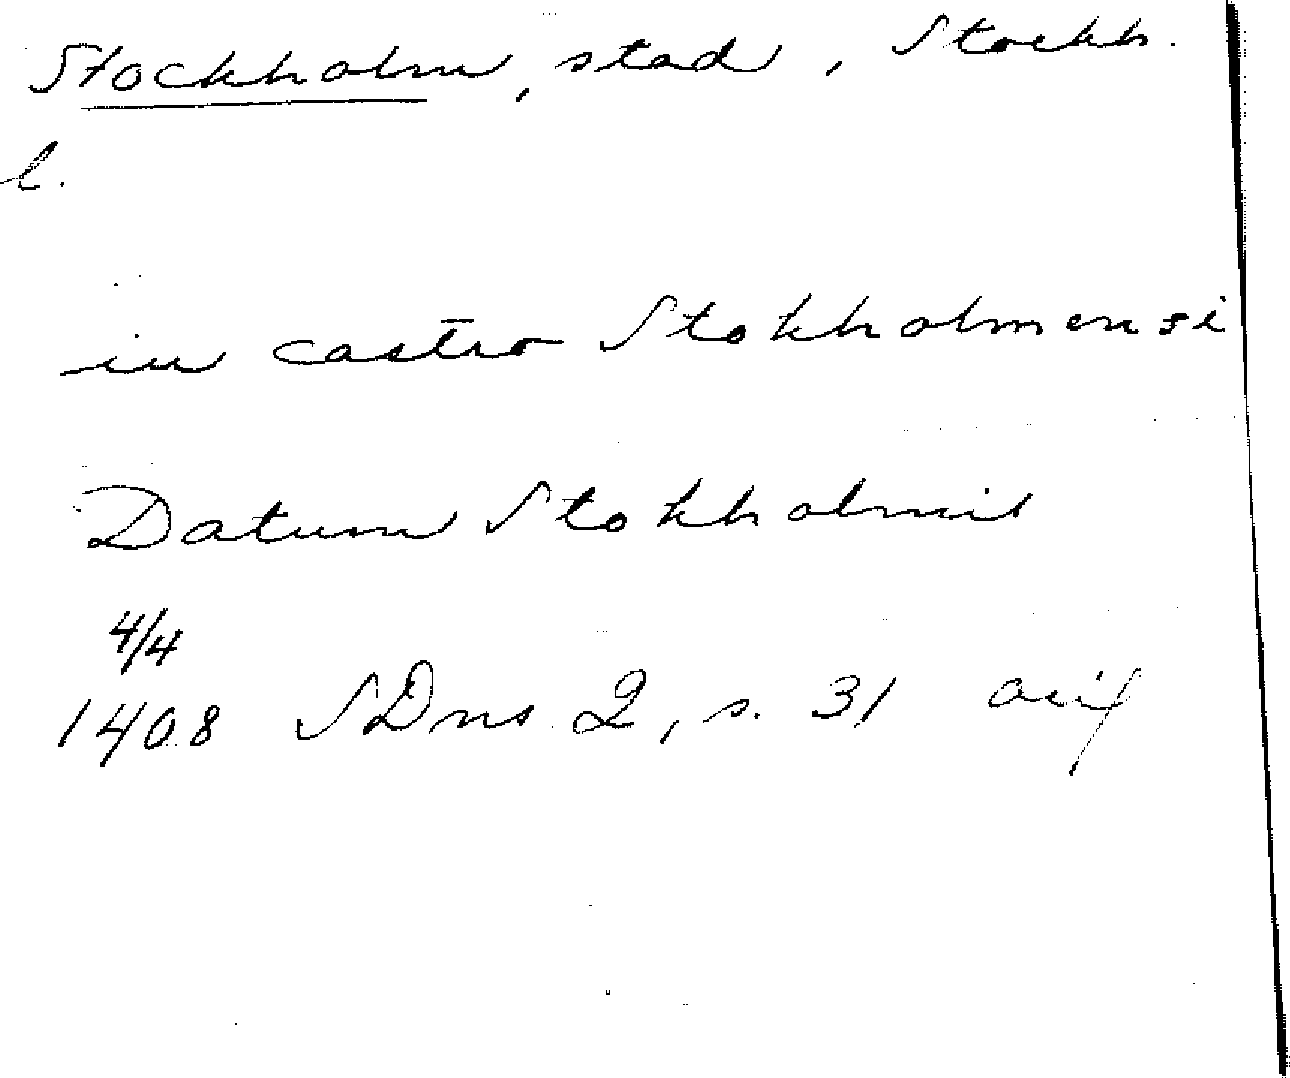 Stockholm, stad, Stockh.
l.
in castro Stokholmensi
Datum Stokholmis
4/4
1408 SDns 2, s. 31 avf